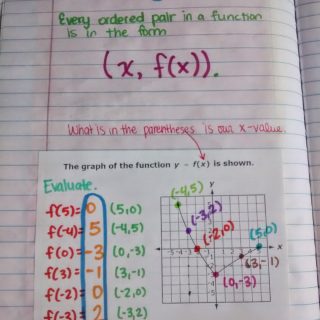 Every ordered pair in a function
is in the form
(x, f(x)).
What is in the parentheses is our x-value.
The graph of the function y = f(x) is shown.
Evaluate.
f(5)=0 (5,0)
f(-4)=5 (-4,5)
f(0)=-3 (0,-3)
f(3)=-1 (3,-1)
f(-2)=0 (-2,0)
f(-3)=2 (-3,2)
y
(-4,5)
(-3,2)
(-2,0)
(5,0)
-5 -4 -3
x
(3,-1)
(0,-3)